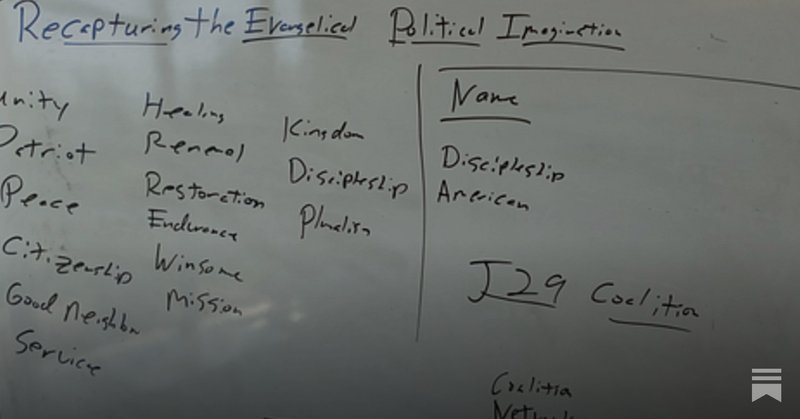 Recapturing the Evangelical Political Imagination
unity
Patriot
Peace
Citizenship
Good Neighbor
Service
Healing
Renewal
Restoration
Endurance
Winsome
Mission
Kingdom
Discipleship
Pluralism
Name
Discipleship
American
J29 Coalition
Coalition
Network